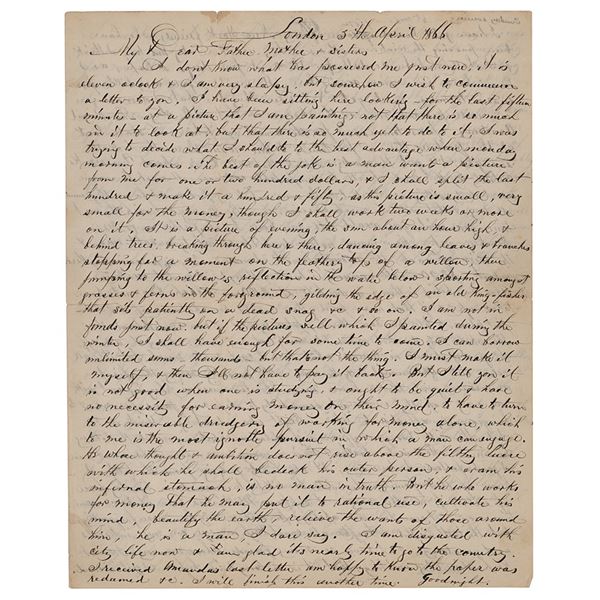 London 5th April 1866
My Dear Father Mother & Sisters
I don't know what has possessed me just now. it is
eleven oclock & I am very sleepy, but somehow I wish to commence
a letter to you. I have been sitting here looking - for the last fifteen
minutes - at a picture that I am painting, not that there is so much
in it to look at, but that there is so much yet to do to it, I was
trying to decide what I should do to the best advantage when monday
morning comes. The best of the joke is a man wants a picture
from me for one or two hundred dollars, & I shall split the last
hundred & make it a hundred & fifty, as this picture is small, very
small for the money, though I shall work two weeks or more
on it. It is a picture of evening, the sun about an hour high, &
behind trees, breaking through here & there, dancing among leaves & branches
stopping for a moment on the feathery top of a willow, then
jumping to the willow's reflection in the water below, sporting amongst
grasses & ferns in the foreground, gilding the edge of an old king-fisher
that sits patiently on a dead snag &c & so on. I am not in
funds just now. but if the pictures sell which I painted during the
winter, I shall have enough for some time to come. I can borrow
unlimited sums, thousands - but thats not the thing. I must make it
myself, & then I'll not have to pay it back. But I tell you it
is not good when one is studying & ought to be quiet & have
no necessity for earning money on their mind, to have to turn
to the miserable drudgery of working for money alone, which
to me is the most ignoble pursuit in which a man can engage.
He whose thought & ambition does not rise above the filthy lucre
with which he shall bedeck his outer person, & cram his
infernal stomach, is no man in truth. But he who works
for money that he may put it to rational use, cultivate his
mind, beautify the earth, relieve the wants of those around
him, he is a man I dare say. I am disgusted with
city life now & I am glad its nearly time to go to the country.
I received Amandas last letter am happy to know the paper was
&c. I will finish this another time. Goodnight.